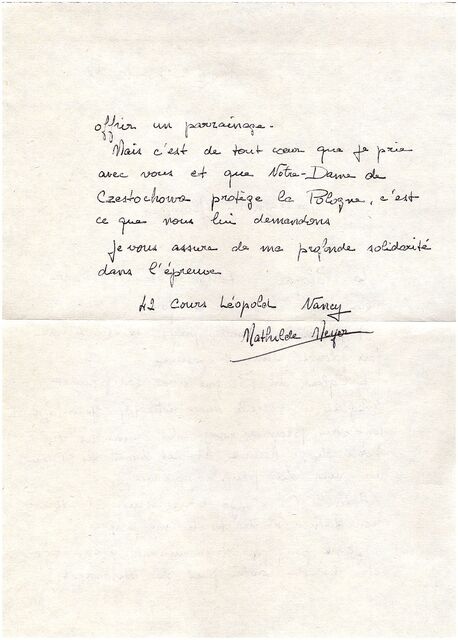 offrir un parrainage.
Mais c'est de tout cœur que je prie
avec vous et que Notre-Dame de
Czestochowa protège la Pologne, c'est
ce que nous lui demandons
Je vous assure de ma profonde solidarité
dans l'épreuve
42 Cours Léopold Nancy
Mathilde Meyer